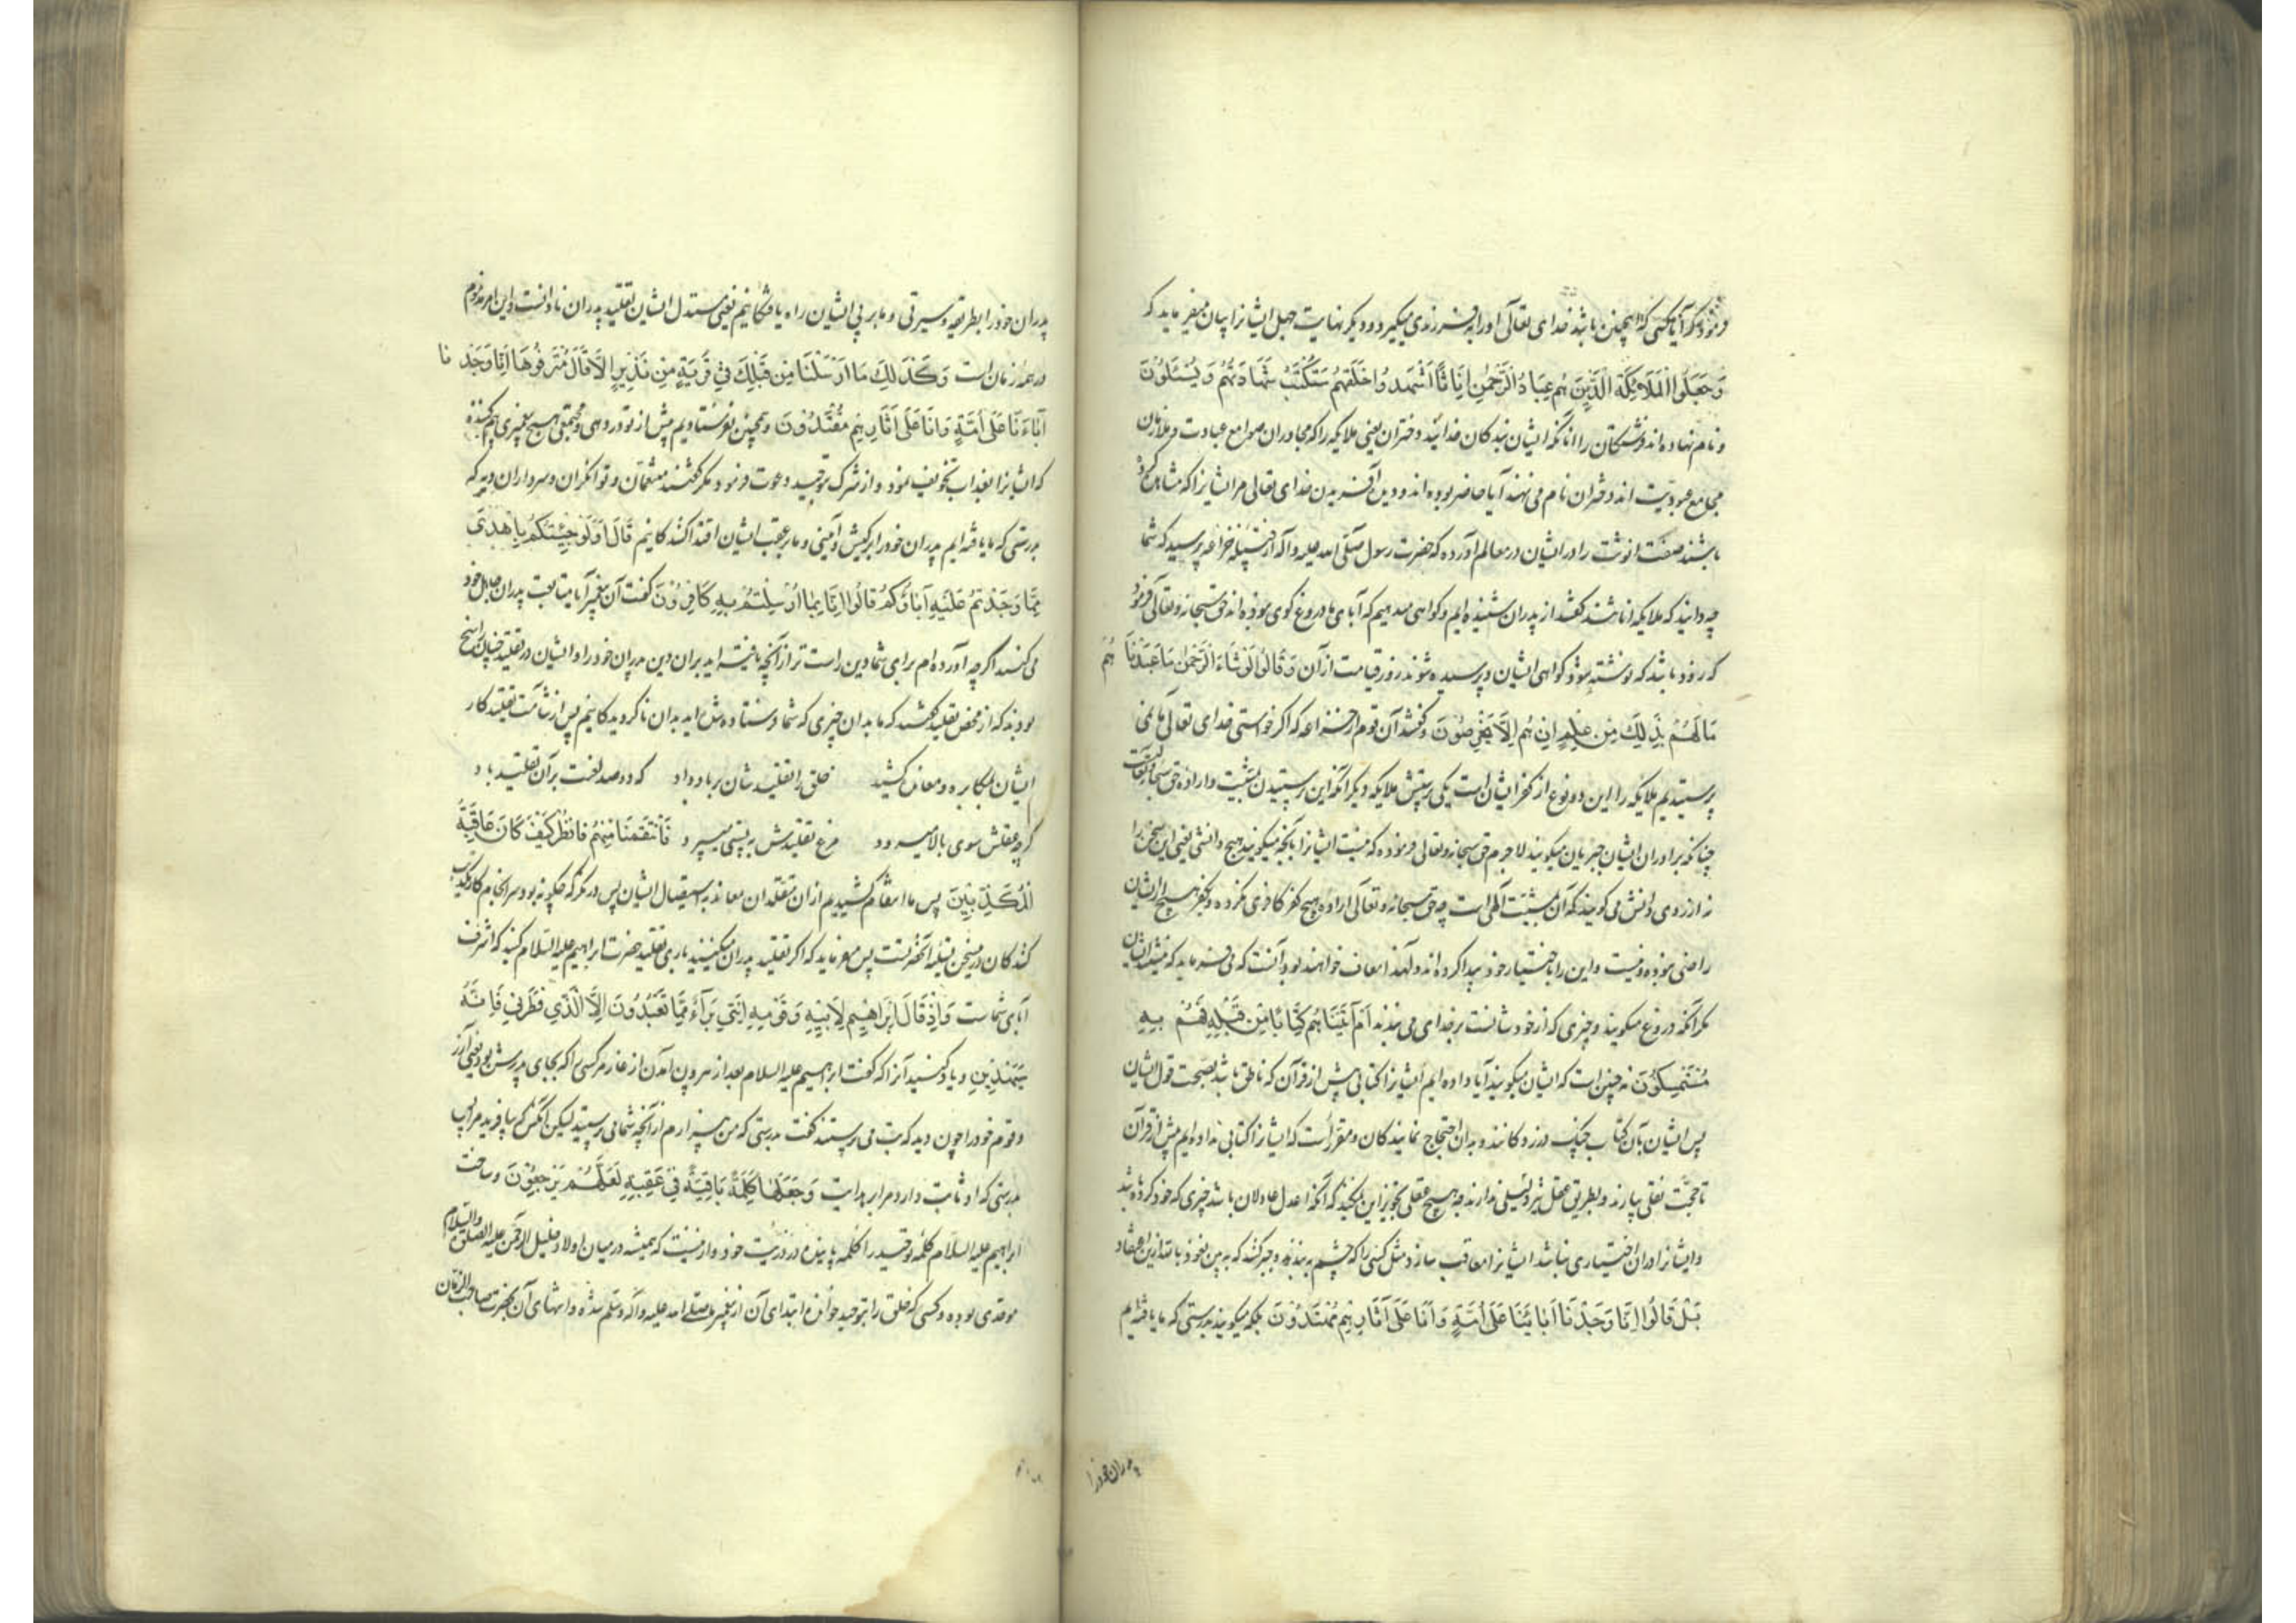 فرمود که آیا کسی که اینچنین باشد خدای تعالی او را بفرزندی میگیرد و دیگر نهایت جهل ایشانرا بیان میفرماید که
وَجَعَلُوا الْمَلَائِكَةَ الَّذِينَ هُمْ عِبَادُ الرَّحْمٰنِ إِنَاثًا أَشَهِدُوا خَلْقَهُمْ سَتُكْتَبُ شَهَادَتُهُمْ وَيُسْئَلُونَ
و نام نهاده اند فرشتگان را آنانکه ایشان بندکان خدایند دختران یعنی ملایکه را که مجاوران صوامع عبادت و ملازمان
مجامع عبودیت اند دختران نام می نهند آیا حاضر بوده اند و دیدن آفریدن خدای تعالی مر ایشانرا که مشاهده کرده
باشند صفت انوثت را در ایشان در معالم آورده که حضرت رسول صلی الله علیه و اله از قبیله خزاعه پرسید که شما
چه دانید که ملایکه اناثند گفتند از پدران شنیده ایم و کواهی میدهیم که آبای ما دروغ کوی نبوده اند حق سبحانه و تعالی فرمود
که زود باشد که نوشته شود کواهی ایشان و پرسیده شوند روز قیامت از آن وَقَالُوا لَوْ شَاءَ الرَّحْمٰنُ مَا عَبَدْنَاهُمْ
مَا لَهُمْ بِذٰلِكَ مِنْ عِلْمٍ إِنْ هُمْ إِلَّا يَخْرُصُونَ و گفتند آن قوم از خزاعه که اکر خواستی خدای تعالی ما نمی
پرستیدیم ملایکه را این دو نوع از کفر ایشان است یکی پرستش ملایکه و دیگر آنکه این پرستیدن بمشیت و اراده حق سبحانه و تعالی است
چنانکه برادران ایشان جبریان میکویند لاجرم حق سبحانه و تعالی فرموده که نیست ایشانرا بآنچه میکویند هیچ دانشی یعنی این سخن را
نه از روی دانش می کویند که آن بمشیت الهی است چه حق سبحانه و تعالی اراده هیچ کفر کافری نکرده و بکفر هیچ از ایشان
راضی نبوده و نیست و این را باختیار خود پیدا کرده اند و لهذا معاقب خواهند بود آنست که می فرماید که نیستند ایشان
مکر آنکه دروغ میکویند و چیزی که از خود شانست بر خدای می بندند أَمْ آتَيْنَاهُمْ كِتَابًا مِنْ قَبْلِهِ فَهُمْ بِهِ
مُسْتَمْسِكُونَ نه چنین است که ایشان میکویند آیا داده ایم ایشانرا کتابی پیش از قرآن که ناطق باشد بصحت قول ایشان
پس ایشان بآن کتاب چنک در زدکانند و بدان احتجاج نمایندکان و مقرر است که ایشانرا کتابی نداده ایم پیش از قرآن
تا حجت نقلی بیارند و بطریق عقل نیز دلیلی ندارند چه هیچ عقلی تجویز این نمیکند که آنکه اعدل عادلان باشد چیزی که خود کرده باشد
و ایشانرا در آن اختیاری نباشد ایشانرا معاقب سازد مثل کسی را که چشم به بندند و جبر کنند که به بین نعوذ بالله از این اعتقاد
بَلْ قَالُوا إِنَّا وَجَدْنَا آبَائَنَا عَلَى أُمَّةٍ وَإِنَّا عَلَى آثَارِهِمْ مُهْتَدُونَ بلکه میکویند بدرستی که ما یافته ایم
پدران خود را
پدران خود را بطریقه و سیرتی و ما بر پی ایشان راه یافتکانیم یعنی مستدل ایشان تقلید پدران نادانست و این امر مذموم
در همه زمان است وَكَذٰلِكَ مَا أَرْسَلْنَا مِنْ قَبْلِكَ فِي قَرْيَةٍ مِنْ نَذِيرٍ إِلَّا قَالَ مُتْرَفُوهَا إِنَّا وَجَدْنَا
آبَاءَنَا عَلَى أُمَّةٍ وَإِنَّا عَلَى آثَارِهِمْ مُقْتَدُونَ و همچنین نفرستادیم پیش از تو در دهی و مجتمعی هیچ پیغمبری بیم کننده
که ایشانرا بعذاب تخویف نمود و از شرک بتوحید دعوت فرمود مکر گفتند متنعمان و توانکران و سرداران دیه که
بدرستی که ما یافته ایم پدران خود را بر کیش و آئینی و ما بر عقب ایشان اقتدا کنندکانیم قَالَ أَوَلَوْ جِئْتُكُمْ بِأَهْدَى
مِمَّا وَجَدْتُمْ عَلَيْهِ آبَاءَكُمْ قَالُوا إِنَّا بِمَا أُرْسِلْتُمْ بِهِ كَافِرُونَ گفت آن پیغمبر آیا متابعت پدران جاهل خود
می کنید اکر چه آورده ام برای شما دین راست تر از آنچه یافته اید بران دین پدران خود را و ایشان در تقلید چنان راسخ
بودند که از محض تقلید گفتند که ما بدان چیزی که شما فرستاده شده اید بدان ناکرویدکانیم پس از شآمت تقلید کار
ایشان بمکابره و معاندت کشید خلق را تقلیدشان بر باد داد که دو صد لعنت بر آن تقلید باد
کرچه عقلش سوی بالا میرود مرغ تقلیدش به پستی میپرد فَانْتَقَمْنَا مِنْهُمْ فَانْظُرْ كَيْفَ كَانَ عَاقِبَةُ
الْمُكَذِّبِينَ پس ما انتقام کشیدیم از ان مقلدان معاند به استیصال ایشان پس در نکر که چکونه بود سرانجام کار تکذیب
کنندکان پس میفرماید که اکر تقلید پدران میکنید باری تقلید حضرت ابراهیم علیه السلام کنید که اشرف
آبای شماست وَإِذْ قَالَ إِبْرَاهِيمُ لِأَبِيهِ وَقَوْمِهِ إِنَّنِي بَرَآءٌ مِمَّا تَعْبُدُونَ إِلَّا الَّذِي فَطَرَنِي فَإِنَّهُ
سَيَهْدِينِ و یاد کنید آنرا که گفت ابراهیم علیه السلام بعد از بیرون آمدن از غار مر کسی را که بجای پدرش بود یعنی آزر
و قوم خود را چون دید که بت می پرستند گفت بدرستی که من بیزارم از آنچه شما می پرستید لیکن آنکس که بیافرید مرا پس
بدرستی که او ثابت دارد مرا بر هدایت وَجَعَلَهَا كَلِمَةً بَاقِيَةً فِي عَقِبِهِ لَعَلَّهُمْ يَرْجِعُونَ و ساخت
ابراهیم علیه السلام کلمه توحید را کلمه پاینده در ذریت خود و از اینست که همیشه در میان اولاد خلیل الرحمن علیه الصلوة والسلام
موحدی بوده و کسی که خلق را بتوحید خوانده ابتدای آن از پیغمبر ما صلی الله علیه و آله وسلم شده و انتهای آن بحضرت صاحب الزمان